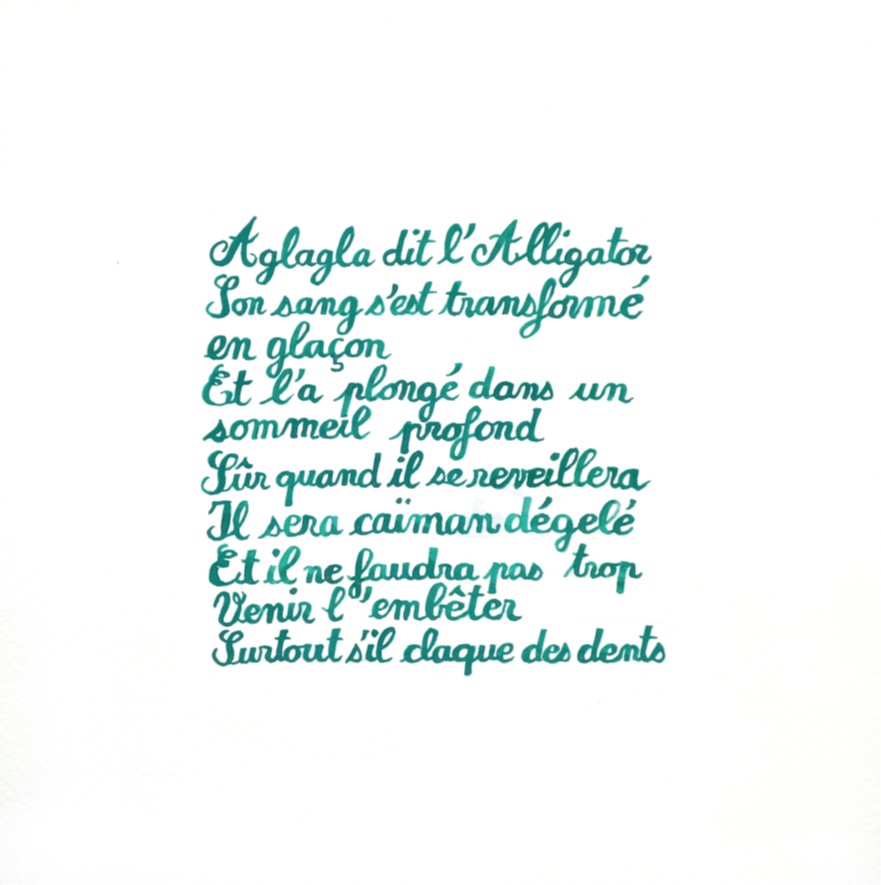 Aglagla dit l'Alligator
Son sang s'est transformé
en glaçon
Et l'a plongé dans un
sommeil profond
Sûr quand il se reveillera
Il sera caïman dégelé
Et il ne faudra pas trop
Venir l''embêter
Surtout s'il claque des dents